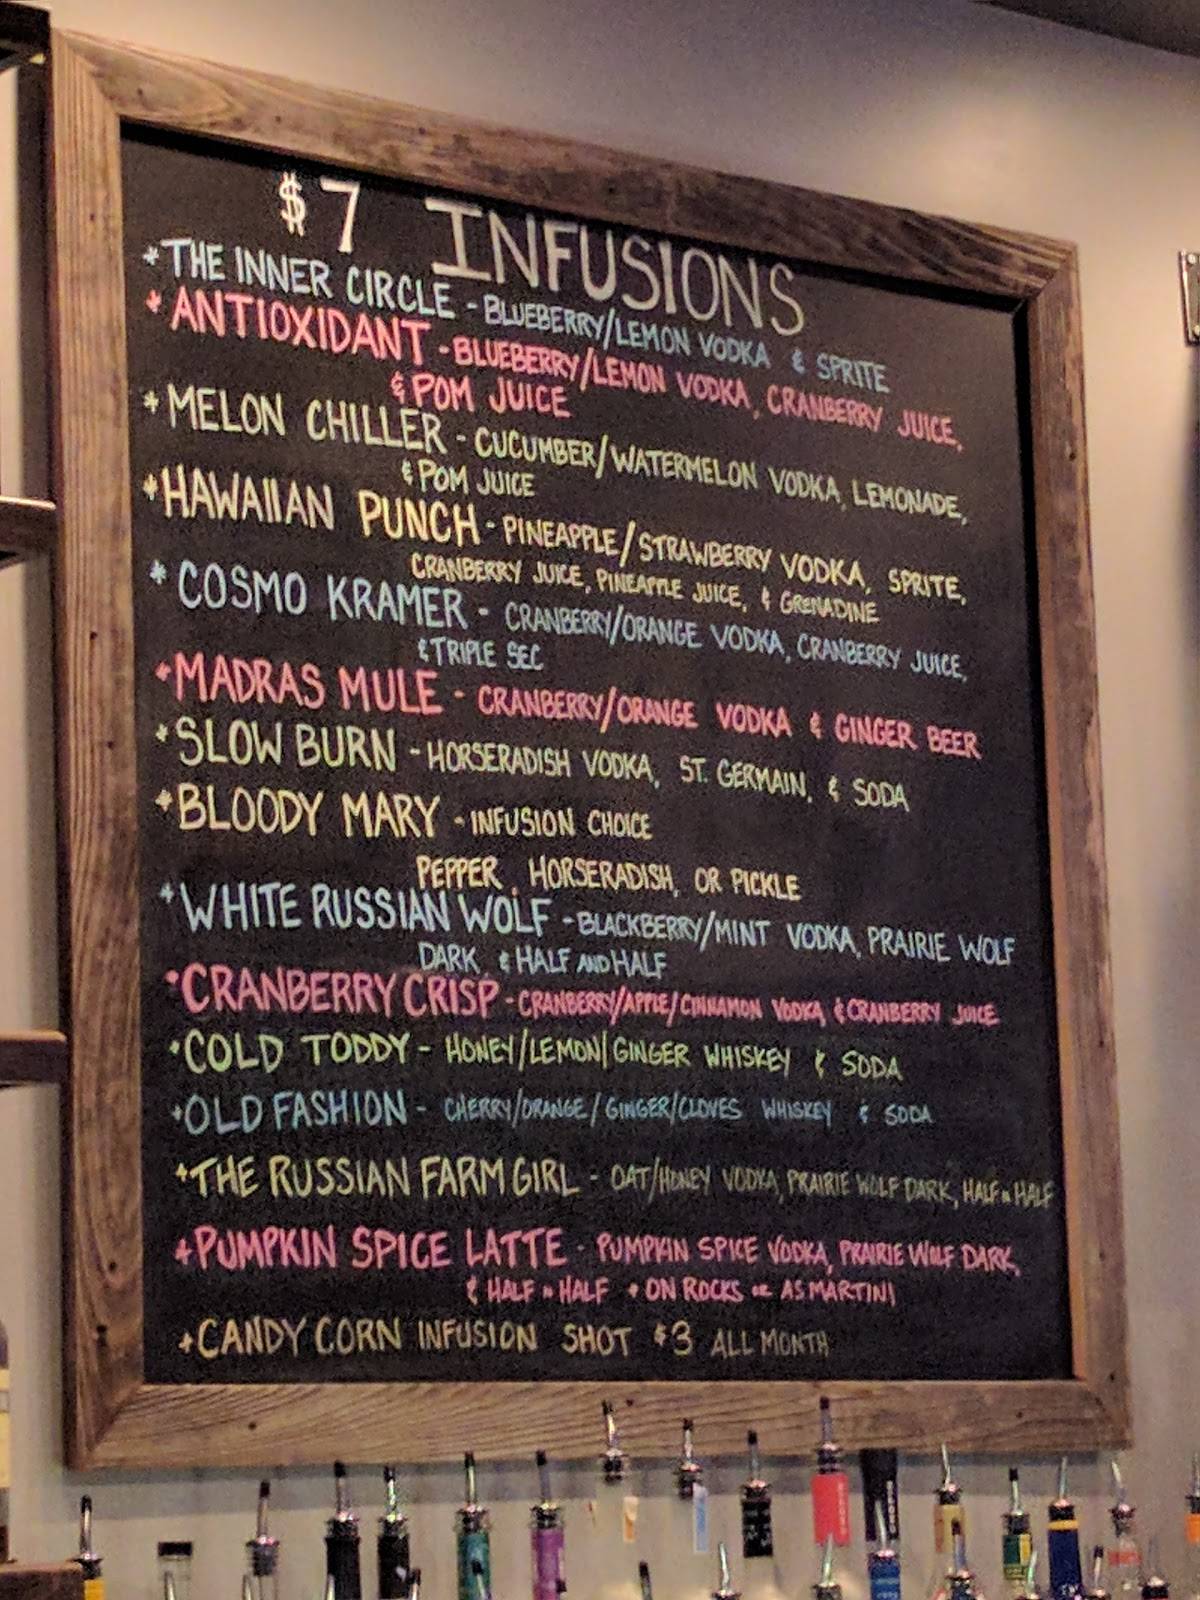 $7 INFUSIONS
*THE INNER CIRCLE - BLUEBERRY/LEMON VODKA & SPRITE
*ANTIOXIDANT - BLUEBERRY/LEMON VODKA, CRANBERRY JUICE,
& POM JUICE
*MELON CHILLER - CUCUMBER/WATERMELON VODKA, LEMONADE,
& POM JUICE
*HAWAIIAN PUNCH - PINEAPPLE/STRAWBERRY VODKA, SPRITE,
CRANBERRY JUICE, PINEAPPLE JUICE, & GRENADINE
*COSMO KRAMER - CRANBERRY/ORANGE VODKA, CRANBERRY JUICE,
& TRIPLE SEC
*MADRAS MULE - CRANBERRY/ORANGE VODKA & GINGER BEER
*SLOW BURN - HORSERADISH VODKA, ST. GERMAIN, & SODA
*BLOODY MARY - INFUSION CHOICE
PEPPER, HORSERADISH, OR PICKLE
*WHITE RUSSIAN WOLF - BLACKBERRY/MINT VODKA, PRAIRIE WOLF
DARK, & HALF AND HALF
*CRANBERRY CRISP - CRANBERRY/APPLE/CINNAMON VODKA, & CRANBERRY JUICE
*COLD TODDY - HONEY/LEMON/GINGER WHISKEY & SODA
*OLD FASHION - CHERRY/ORANGE/GINGER/CLOVES WHISKEY & SODA
*THE RUSSIAN FARM GIRL - OAT/HONEY VODKA, PRAIRIE WOLF DARK, HALF N HALF
*PUMPKIN SPICE LATTE - PUMPKIN SPICE VODKA, PRAIRIE WOLF DARK,
& HALF N HALF * ON ROCKS OR AS MARTINI
*CANDY CORN INFUSION SHOT $3 ALL MONTH